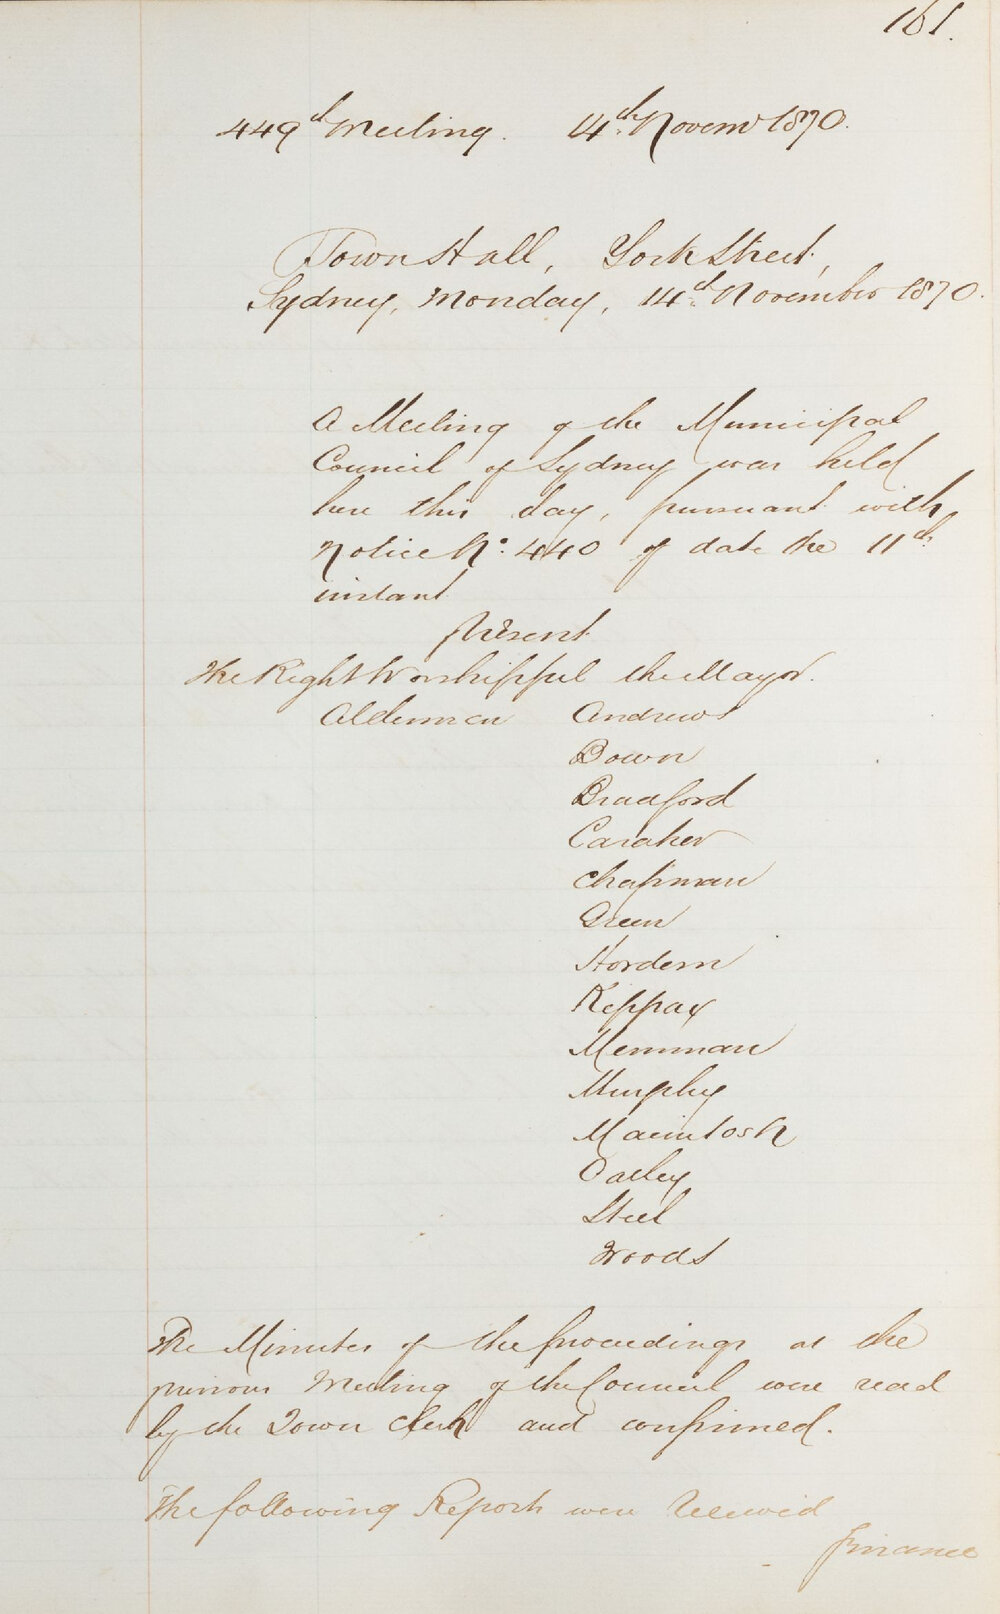 161.
449th Meeting. 14th Novemr 1870.
Town Hall, York Street,
Sydney, Monday, 14th November 1870.
A Meeting of the Municipal
Council of Sydney was held
here this day, pursuant with
Notice No. 440 of date the 11th
instant
Present
The Right Worshipful the Mayor.
Aldermen Andrews
Bown
Bradford
Caraher
Chapman
Green
Hordern
Kippax
Merriman
Murphy
Macintosh
Oatley
Steel
Woods
The Minutes of the proceedings at the
previous Meeting of the Council were read
by the Town Clerk and confirmed.
The following Reports were received
Finance